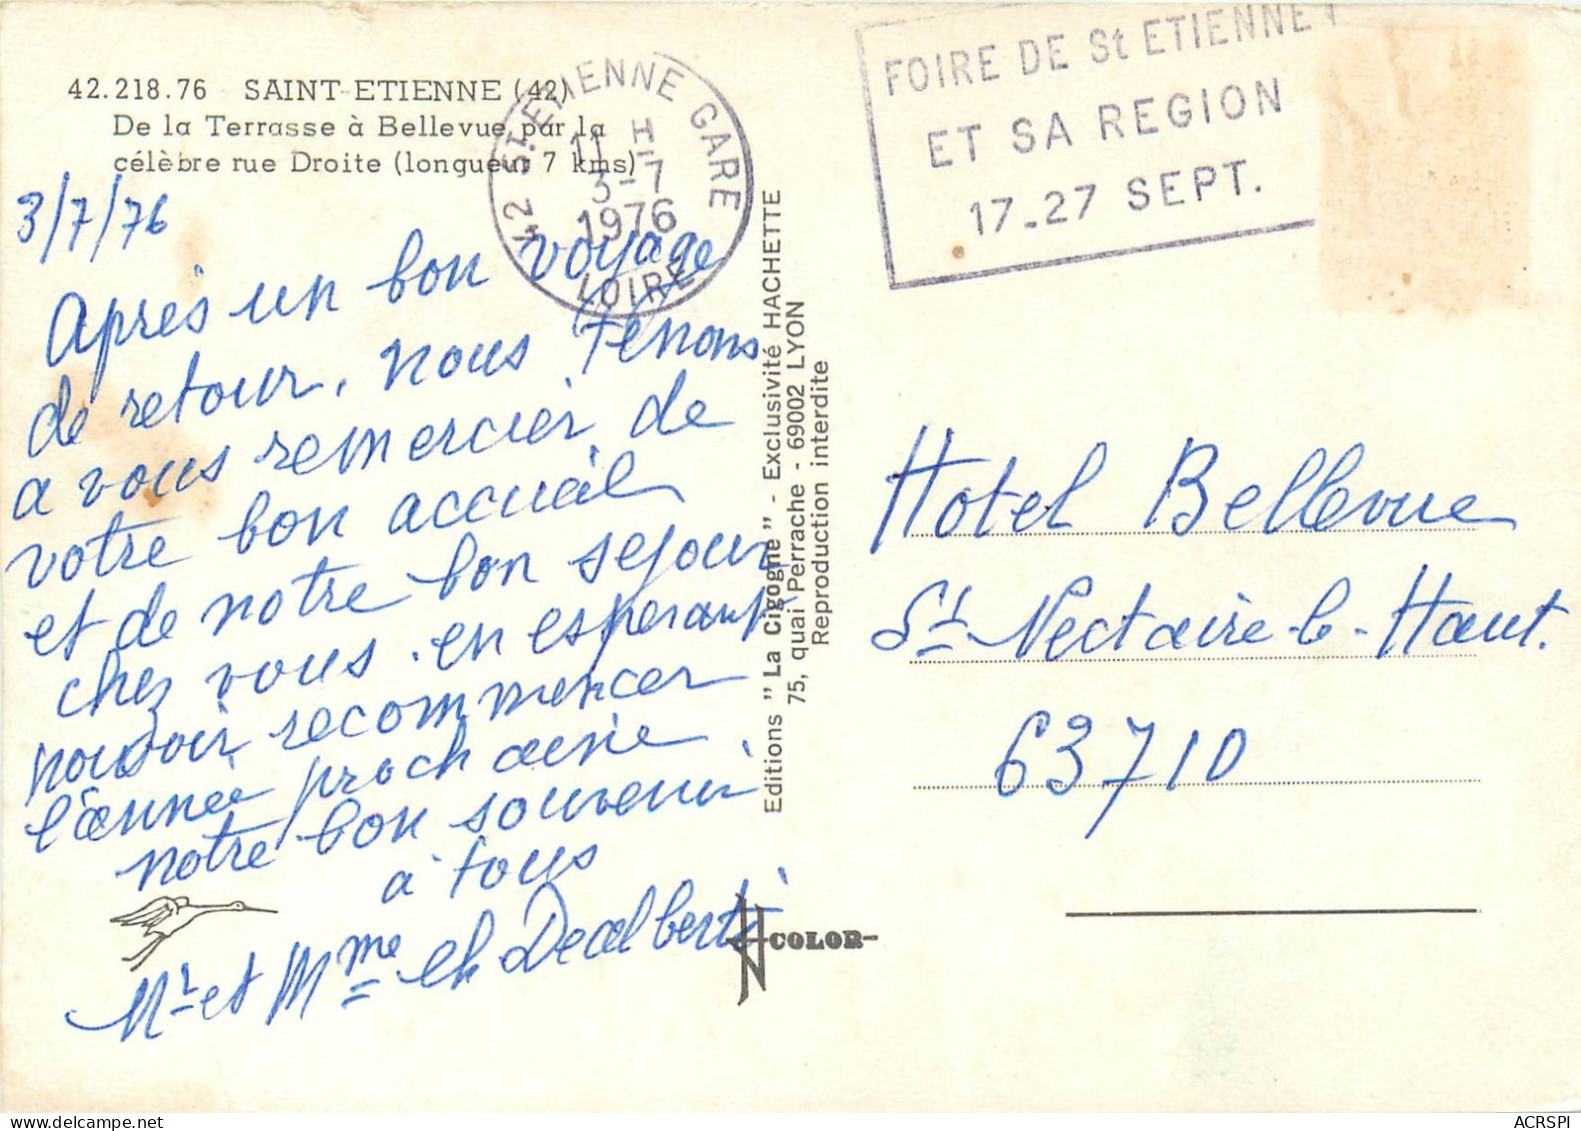 42.218.76 SAINT-ETIENNE (42)
De la Terrasse à Bellevue par la
célèbre rue Droite (longueur 7 kms)
42 ST-ETIENNE GARE
11 H
3-7
1976
LOIRE
FOIRE DE St ETIENNE
ET SA REGION
17-27 SEPT.
3/7/76
Après un bon voyage
de retour, nous tenons
a vous remercier de
votre bon accueil
et de notre bon sejour
chez vous. en esperant
pouvoir recommencer
l'année prochaine.
notre bon souvenir
à tous
Mr et Mme ch Dealberti
Editions "La Cigogne" - Exclusivité HACHETTE
75, quai Perrache - 69002 LYON
Reproduction interdite
COLOR
Hotel Bellevue
St Nectaire-le-Haut.
63710
ACRSPI